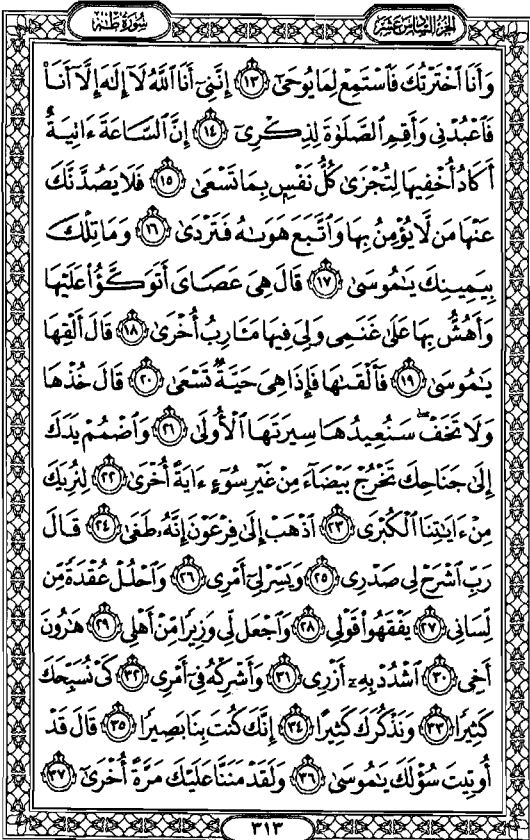 سُورَةُ طٰهٰ
الجزء السادس عشر
وَأَنَا ٱخْتَرْتُكَ فَٱسْتَمِعْ لِمَا يُوحَىٰٓ ﴿١٣﴾ إِنَّنِىٓ أَنَا ٱللَّهُ لَآ إِلَٰهَ إِلَّآ أَنَا۠
فَٱعْبُدْنِى وَأَقِمِ ٱلصَّلَوٰةَ لِذِكْرِىٓ ﴿١٤﴾ إِنَّ ٱلسَّاعَةَ ءَاتِيَةٌ
أَكَادُ أُخْفِيهَا لِتُجْزَىٰ كُلُّ نَفْسٍۭ بِمَا تَسْعَىٰ ﴿١٥﴾ فَلَا يَصُدَّنَّكَ
عَنْهَا مَن لَّا يُؤْمِنُ بِهَا وَٱتَّبَعَ هَوَىٰهُ فَتَرْدَىٰ ﴿١٦﴾ وَمَا تِلْكَ
بِيَمِينِكَ يَٰمُوسَىٰ ﴿١٧﴾ قَالَ هِىَ عَصَاىَ أَتَوَكَّؤُا۟ عَلَيْهَا
وَأَهُشُّ بِهَا عَلَىٰ غَنَمِى وَلِىَ فِيهَا مَـَٔارِبُ أُخْرَىٰ ﴿١٨﴾ قَالَ أَلْقِهَا
يَٰمُوسَىٰ ﴿١٩﴾ فَأَلْقَىٰهَا فَإِذَا هِىَ حَيَّةٌ تَسْعَىٰ ﴿٢٠﴾ قَالَ خُذْهَا
وَلَا تَخَفْ ۖ سَنُعِيدُهَا سِيرَتَهَا ٱلْأُولَىٰ ﴿٢١﴾ وَٱضْمُمْ يَدَكَ
إِلَىٰ جَنَاحِكَ تَخْرُجْ بَيْضَآءَ مِنْ غَيْرِ سُوٓءٍ ءَايَةً أُخْرَىٰ ﴿٢٢﴾ لِنُرِيَكَ
مِنْ ءَايَٰتِنَا ٱلْكُبْرَى ﴿٢٣﴾ ٱذْهَبْ إِلَىٰ فِرْعَوْنَ إِنَّهُۥ طَغَىٰ ﴿٢٤﴾ قَالَ
رَبِّ ٱشْرَحْ لِى صَدْرِى ﴿٢٥﴾ وَيَسِّرْ لِىٓ أَمْرِى ﴿٢٦﴾ وَٱحْلُلْ عُقْدَةً مِّن
لِّسَانِى ﴿٢٧﴾ يَفْقَهُوا۟ قَوْلِى ﴿٢٨﴾ وَٱجْعَل لِّى وَزِيرًا مِّنْ أَهْلِى ﴿٢٩﴾ هَٰرُونَ
أَخِى ﴿٣٠﴾ ٱشْدُدْ بِهِۦٓ أَزْرِى ﴿٣١﴾ وَأَشْرِكْهُ فِىٓ أَمْرِى ﴿٣٢﴾ كَىْ نُسَبِّحَكَ
كَثِيرًا ﴿٣٣﴾ وَنَذْكُرَكَ كَثِيرًا ﴿٣٤﴾ إِنَّكَ كُنتَ بِنَا بَصِيرًا ﴿٣٥﴾ قَالَ قَدْ
أُوتِيتَ سُؤْلَكَ يَٰمُوسَىٰ ﴿٣٦﴾ وَلَقَدْ مَنَنَّا عَلَيْكَ مَرَّةً أُخْرَىٰٓ ﴿٣٧﴾
٣١٣